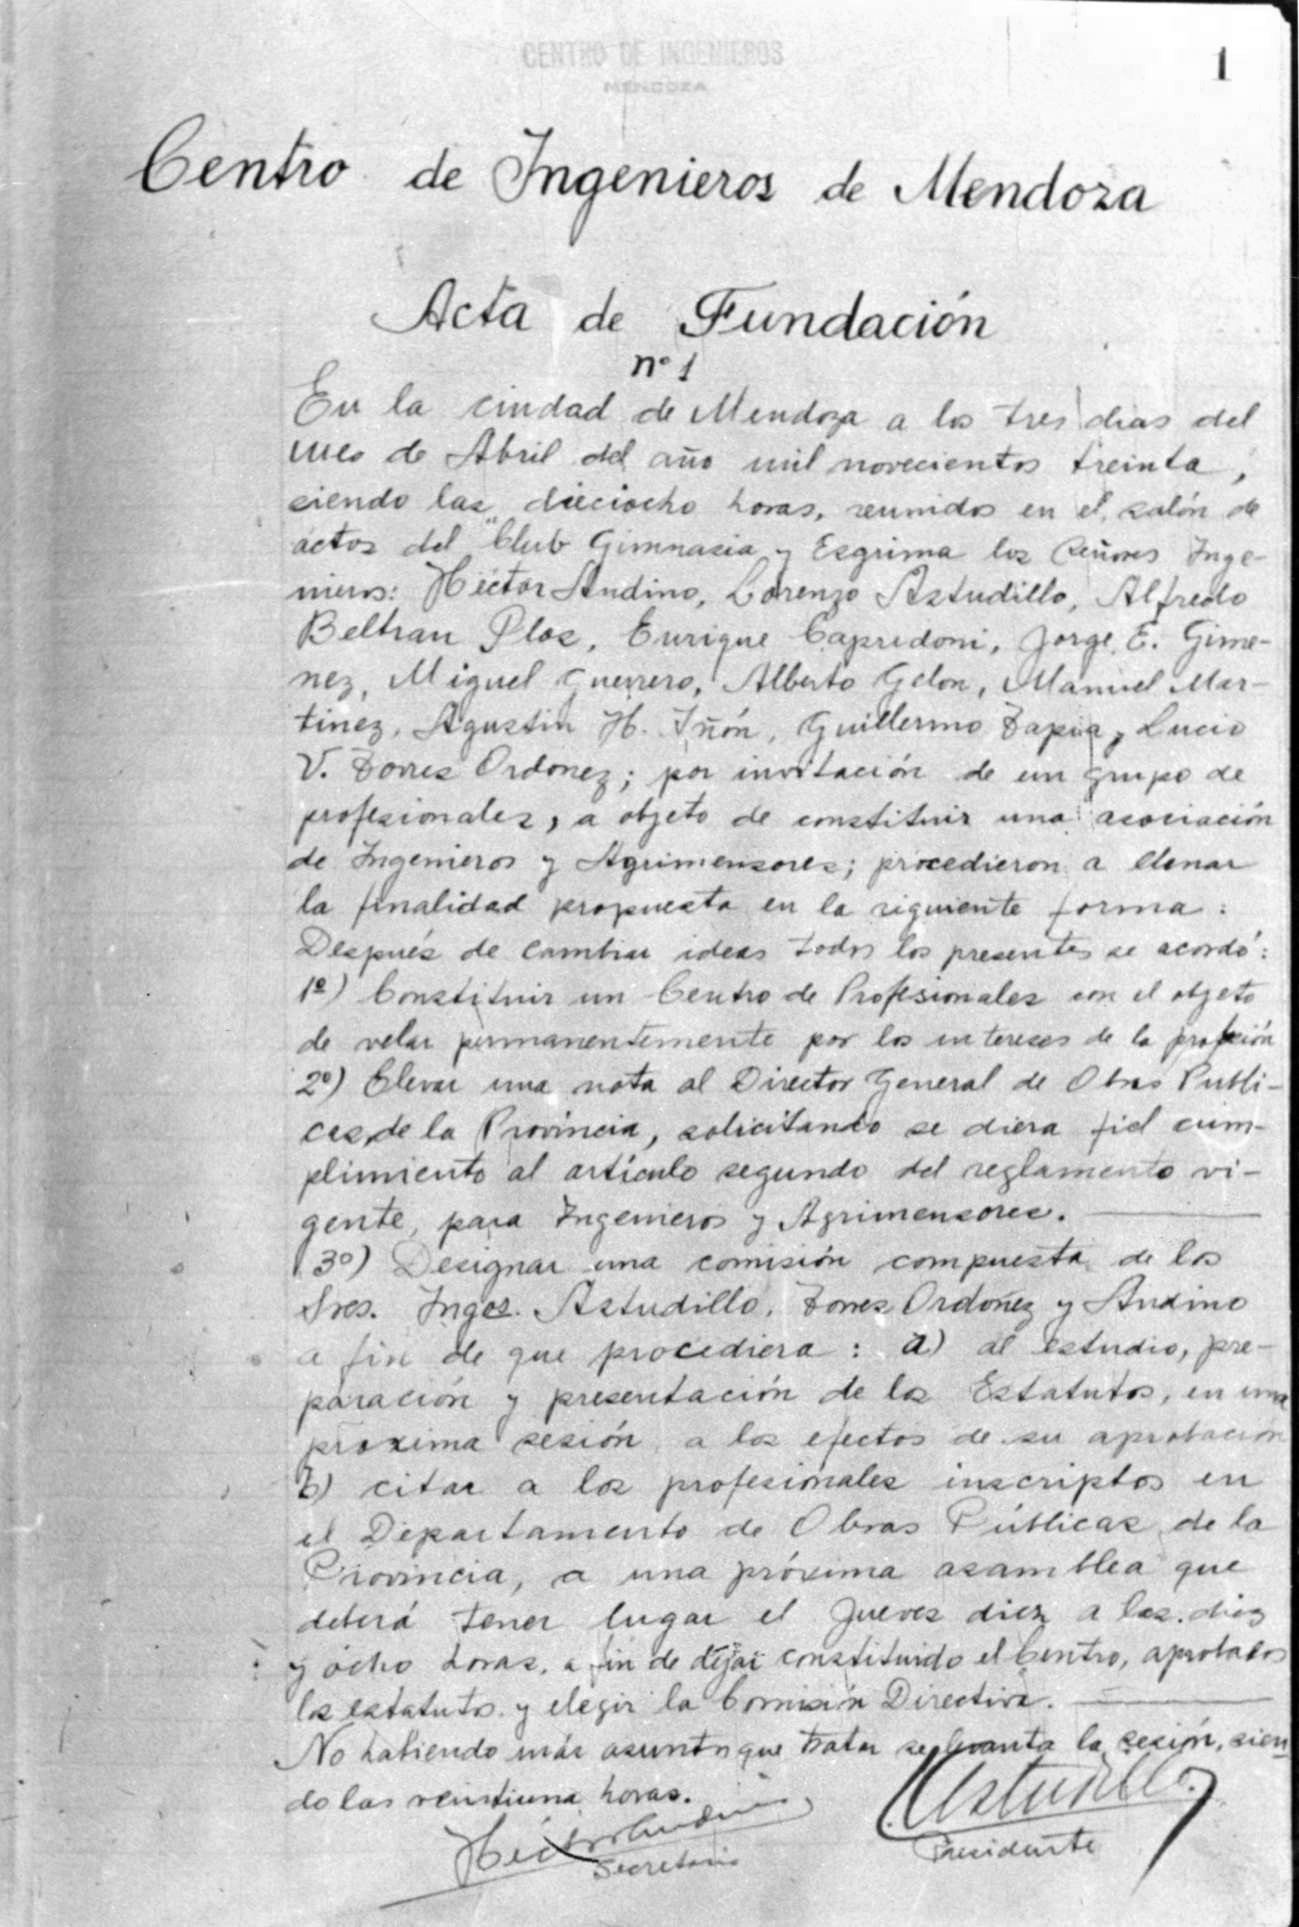 CENTRO DE INGENIEROS
MENDOZA
1
Centro de Ingenieros de Mendoza
Acta de Fundación
nº 1
En la ciudad de Mendoza a los tres dias del
mes de Abril del año mil novecientos treinta,
siendo las dieciocho horas, reunidos en el salón de
actos del "Club Gimnasia y Esgrima los Señores Inge-
nieros: Héctor Andino, Lorenzo Astudillo, Alfredo
Beltran Plos, Enrique Capredoni, Jorge E. Gime-
nez, Miguel Guerrero, Alberto Gelon, Manuel Mar-
tinez, Agustin H. Iñón, Guillermo Tapia, Lucio
V. Torres Ordoñez; por invitación de un grupo de
profesionales, a objeto de constituir una asociación
de Ingenieros y Agrimensores; procedieron a llenar
la finalidad propuesta en la siguiente forma:
Después de cambiar ideas todos los presentes se acordó:
1º) Constituir un Centro de Profesionales con el objeto
de velar permanentemente por los intereses de la profesión
2º) Elevar una nota al Director General de Obras Publi-
cas de la Provincia, solicitando se diera fiel cum-
plimiento al artículo segundo del reglamento vi-
gente, para Ingenieros y Agrimensores.
3º) Designar una comisión compuesta de los
Sres. Ingos. Astudillo, Torres Ordoñez y Andino
a fin de que procediera: a) al estudio, pre-
paración y presentación de los Estatutos, en una
proxima sesión a los efectos de su aprobación
b) citar a los profesionales inscriptos en
el Departamento de Obras Públicas de la
Provincia, a una próxima asamblea que
deberá tener lugar el Jueves diez a las diez
y ocho horas, a fin de dejar constituido el Centro, aprobados
los estatutos y elegir la Comisión Directiva.
No habiendo más asuntos que tratar se levanta la sesión, sien
do las veintiuna horas.
Héctor Andino
Secretario
Astudillo
Presidente